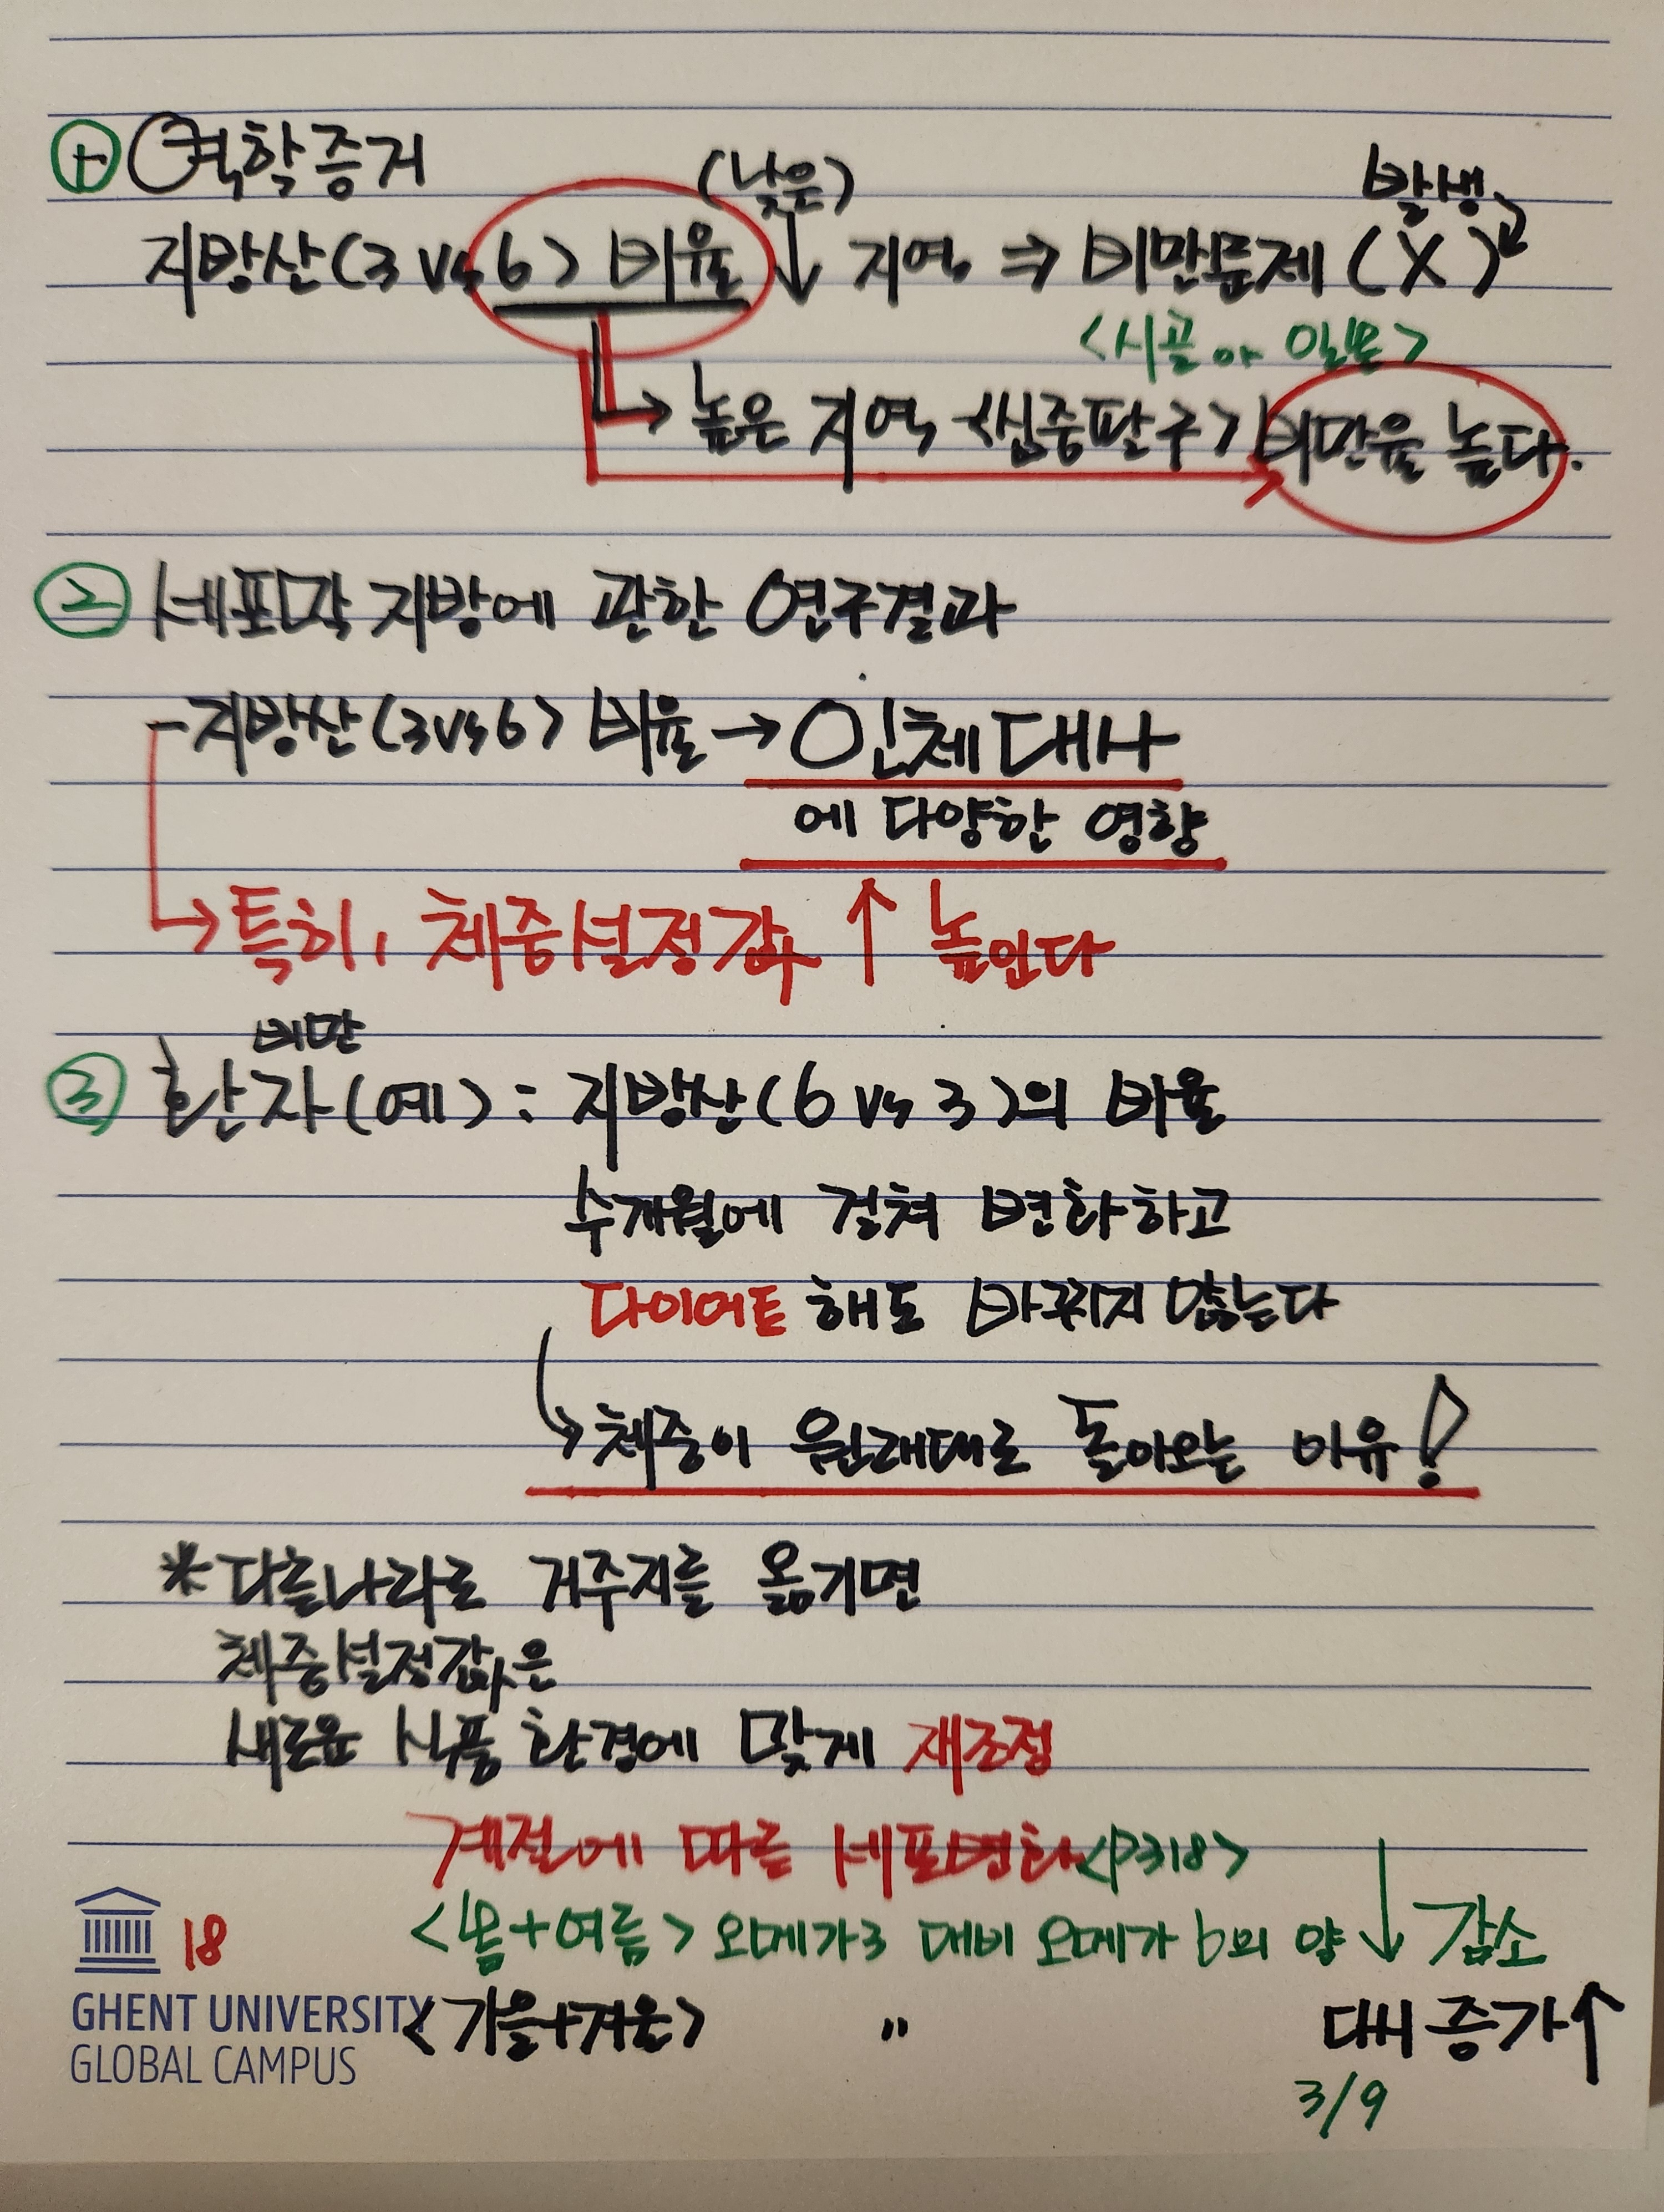 ① 역학증거
(낮은) 발생
지방산(3 vs 6) 비율 ↓ 지역 ⇒ 비만문제 (X)
<시골 or 일본>
→ 높은 지역 <서구> 비만율 높다.
② 세포막 지방에 관한 연구결과
- 지방산(3 vs 6) 비율 → 인체대사
에 다양한 영향
→ 특히, 체중설정값 ↑ 높인다
비만
③ 환자(예) : 지방산(6 vs 3)의 비율
수개월에 걸쳐 변화하고
다이어트 해도 바뀌지 않는다
→ 체중이 원래대로 돌아오는 이유!
* 다른나라로 거주지를 옮기면
체중설정값은
새로운 식품 환경에 맞게 재조정
계절에 따른 세포변화 <P318>
<봄+여름> 오메가3 대비 오메가6의 양 ↓ 감소
18
GHENT UNIVERSITY <가을+겨울> " 대비 증가 ↑
GLOBAL CAMPUS
3/9